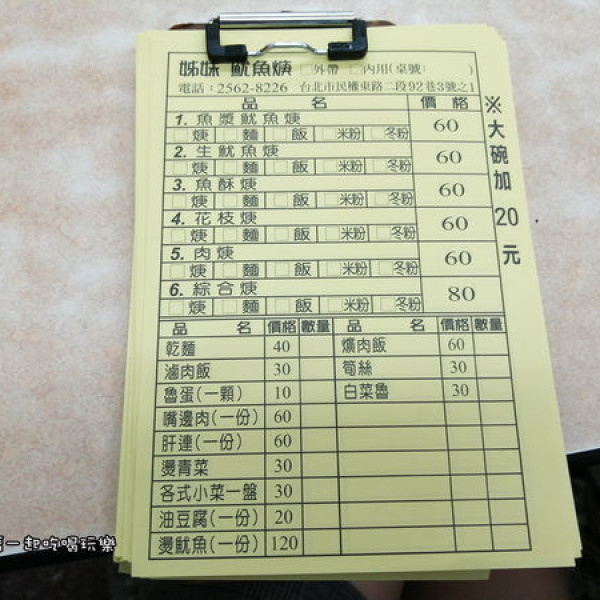 姊妹 魷魚焿 □外帶 □內用(桌號: )
電話:2562-8226 台北市民權東路二段92巷3號之1
品 名 價 格
1. 魚漿魷魚焿 60
□焿 □麵 □飯 □米粉 □冬粉
2. 生魷魚焿 60
□焿 □麵 □飯 □米粉 □冬粉
3. 魚酥焿 60
□焿 □麵 □飯 □米粉 □冬粉
4. 花枝焿 60
□焿 □麵 □飯 □米粉 □冬粉
5. 肉焿 60
□焿 □麵 □飯 □米粉 □冬粉
6. 綜合焿 80
□焿 □麵 □飯 □米粉 □冬粉
※大碗加20元
品 名 價格 數量 品 名 價格 數量
乾麵 40 爌肉飯 60
滷肉飯 30 筍絲 30
魯蛋(一顆) 10 白菜魯 30
嘴邊肉(一份) 60
肝連(一份) 60
燙青菜 30
各式小菜一盤 30
油豆腐(一份) 20
燙魷魚(一份) 120
一起吃喝玩樂